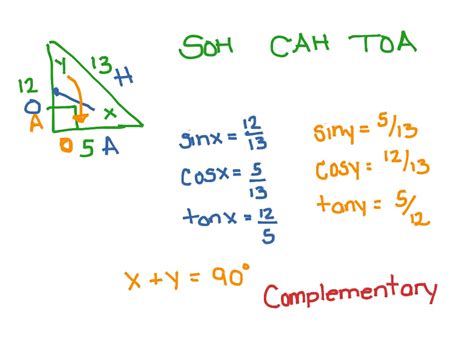 SOH CAH TOA
y 13 H
12
O
A x
O 5 A
sinx = 12/13
cosx = 5/13
tanx = 12/5
siny = 5/13
cosy = 12/13
tany = 5/12
x + y = 90°
Complementary